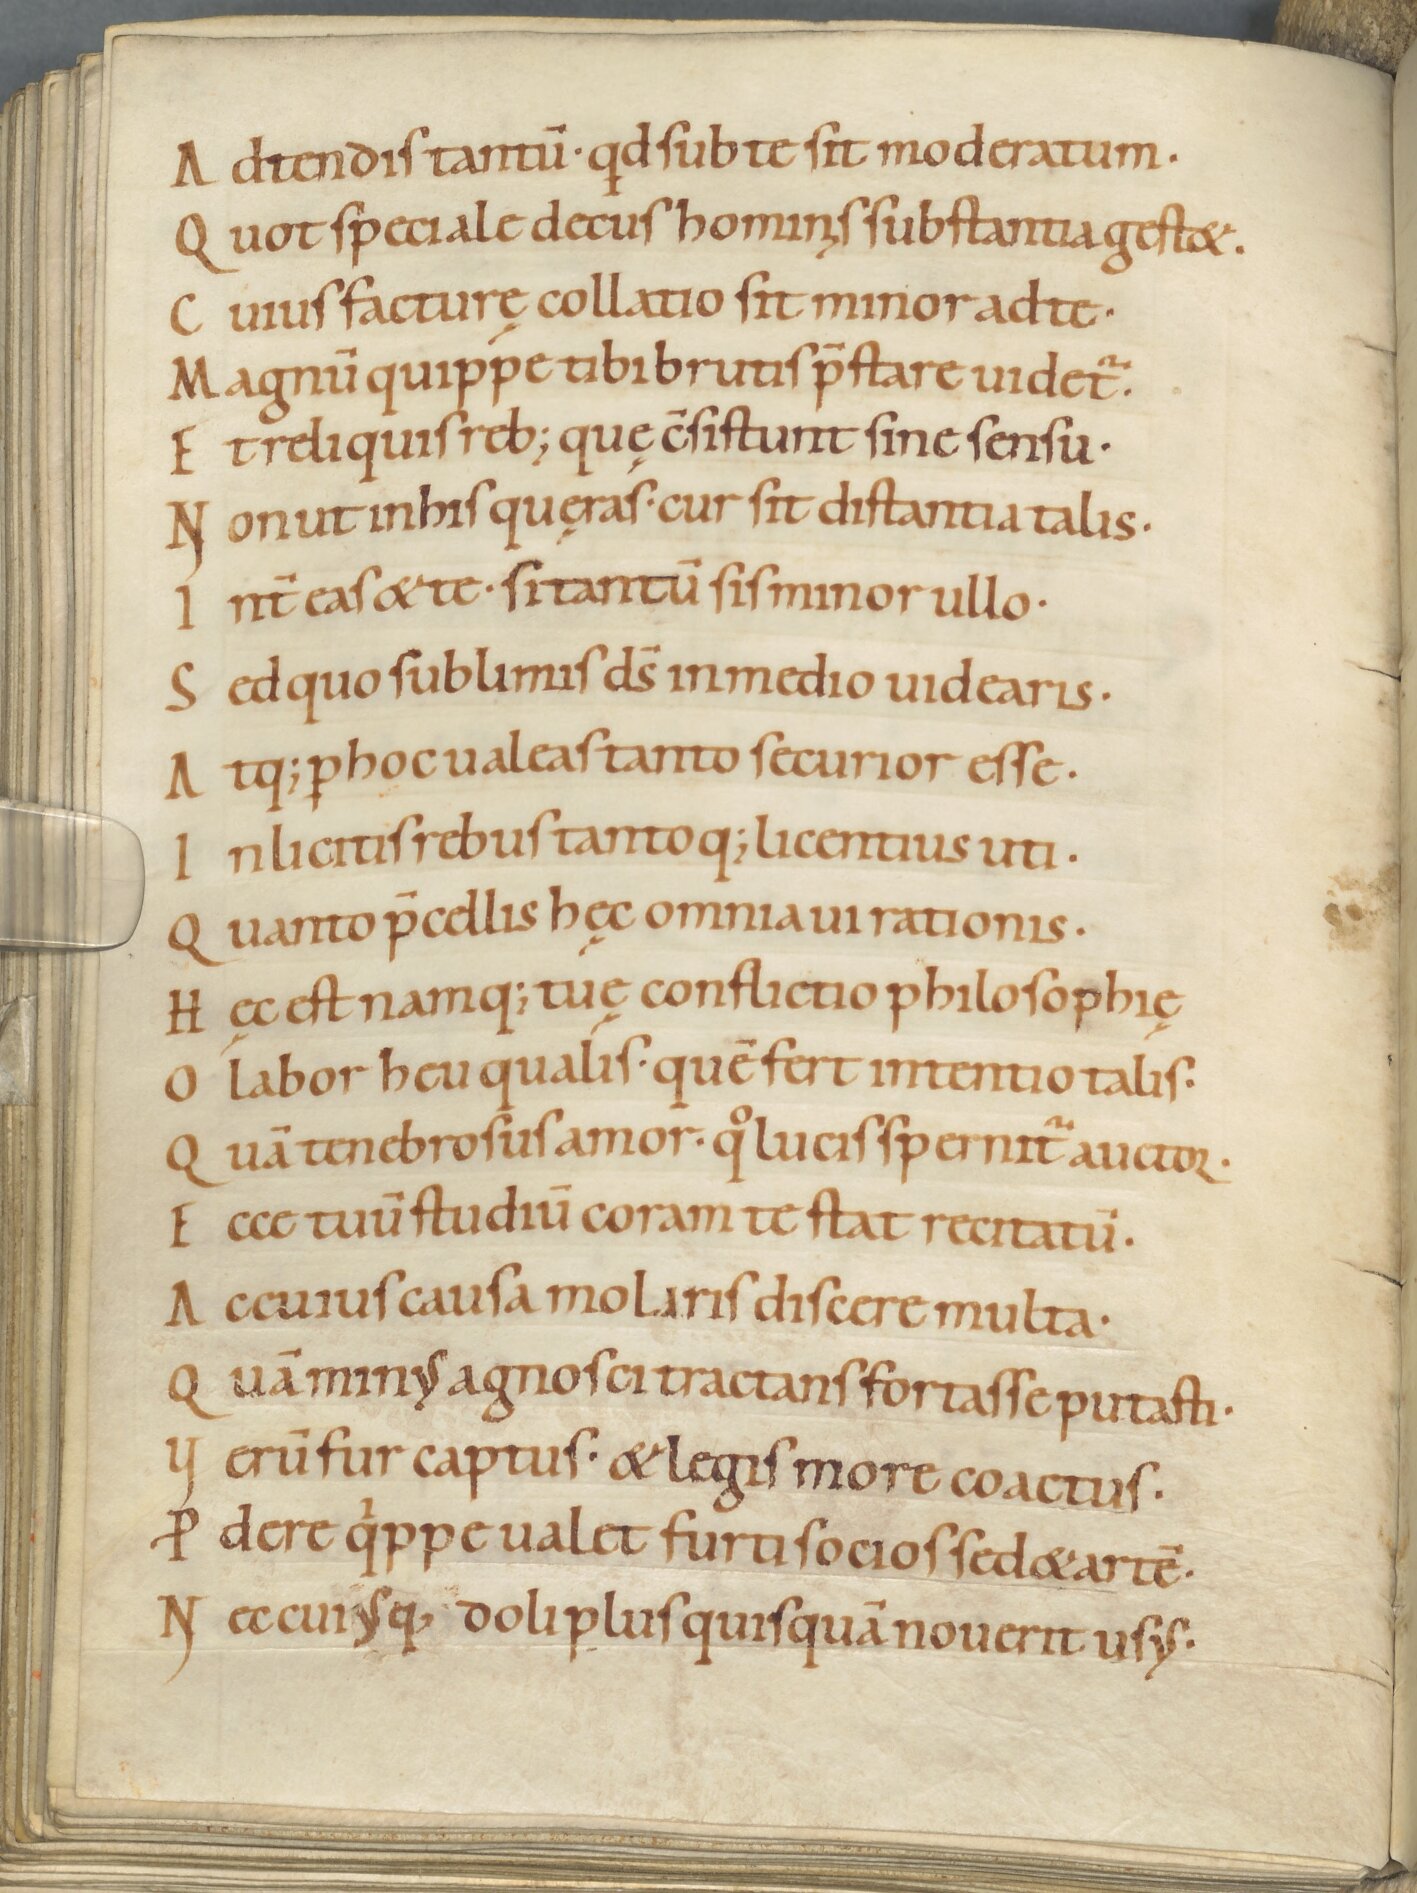 Adtendis tantū· qd sub te sit moderatum·
Quot speciale decus hominis substantia gestet&·
Cuius facturę collatio sit minor ad te·
Magnū quippe tibi brutis p̄stare uidet᷑·
Et reliquis reb; quę c̄sistunt sine sensu·
Non ut in his quęras· cur sit distantia talis·
Int̄ eas & te· si tantū sis minor ullo·
Sed quo sublimis ds̄ in medio uidearis·
Atq; ꝑ hoc ualeas tanto securior esse·
In licitis rebus tantoq; licentius uti·
Quanto p̄cellis hęc omnia ui rationis·
Hęc est namq; tuę conflictio philosophię
O labor heu qualis· quē fert intentio talis·
Quā tenebrosus amor· qͦ lucis spernit᷑ auctor·
Ecce tuū studiū coram te stat recitatū·
Ac cuius causa moliris discere multa·
Quā minus agnosci tractans fortasse putasti·
Verū fur captus· & legis more coactus·
Ꝓdere qͥppe ualet furti socios sed & artē·
Nec cuiusq, doli plus quisquā nouerit usus·